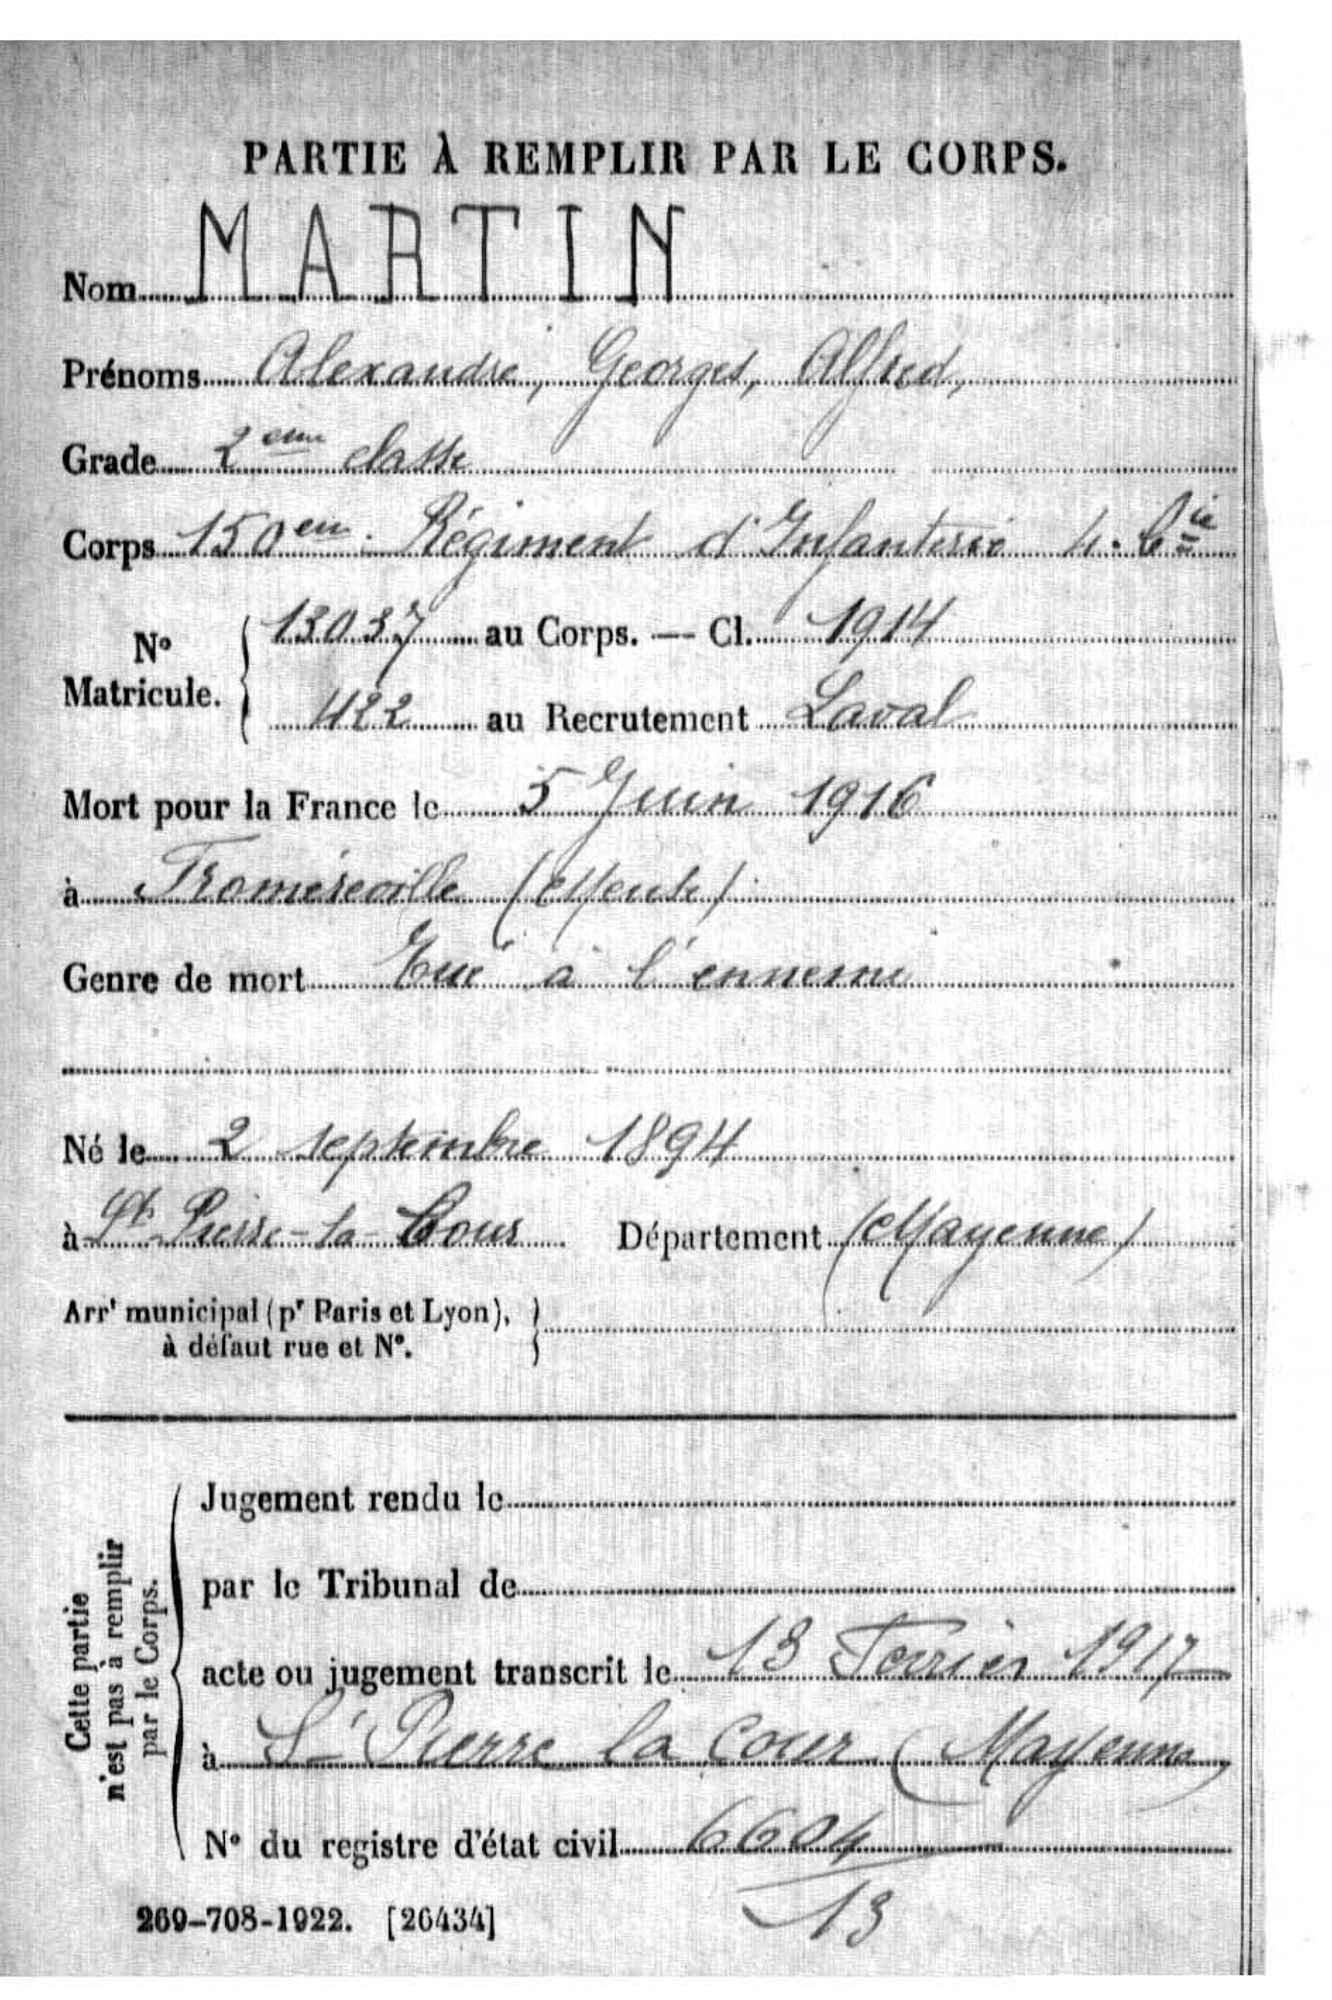 PARTIE À REMPLIR PAR LE CORPS.
Nom MARTIN
Prénoms Alexandre, Georges, Alfred,
Grade 2eme classe
Corps 150em. Régiment d'Infanterie 4. Cie
No Matricule. { 13037 au Corps. — Cl. 1914
422 au Recrutement Laval
Mort pour la France le 5 Juin 1916
à Fromèreville (Meuse)
Genre de mort Tué à l'ennemi
Né le 2 septembre 1894
à St Pierre-la-Cour Département (Mayenne)
Arrt municipal (pr Paris et Lyon), }
à défaut rue et No.
Cette partie
n'est pas à remplir
par le Corps.
Jugement rendu le
par le Tribunal de
acte ou jugement transcrit le 13 Fevrier 1917
à St Pierre la Cour (Mayenne)
No du registre d'état civil 6604
13
269-708-1922. [26434]